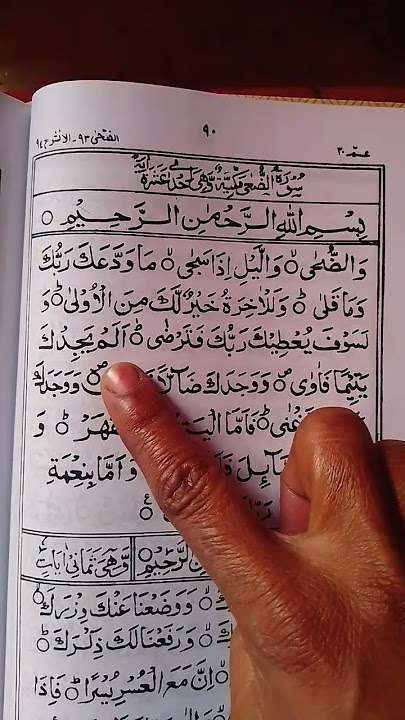 الضحى ٩٣ - الانشر ٩٤
٩٠
عمّ ٣٠
سُوْرَةُ الضُّحٰى مَكِّيَّةٌ وَّهِيَ اِحْدٰى عَشْرَةَ اٰيَةً
بِسْمِ اللّٰهِ الرَّحْمٰنِ الرَّحِيْمِ ○
وَالضُّحٰى ○ وَالَّيْلِ اِذَا سَجٰى ○ مَا وَدَّعَكَ رَبُّكَ
وَمَا قَلٰى ○ وَلَلْاٰخِرَةُ خَيْرٌ لَّكَ مِنَ الْاُوْلٰى ○ وَ
لَسَوْفَ يُعْطِيْكَ رَبُّكَ فَتَرْضٰى ○ اَلَمْ يَجِدْكَ
يَتِيْمًا فَاٰوٰى ○ وَوَجَدَكَ ضَآلًّا وَوَجَدَكَ
فَاَمَّا وَ
وَاَمَّا بِنِعْمَةِ
الرَّحِيْمِ ○ وَّهِيَ ثَمَانِيْ اٰيَاتٍ
○ وَوَضَعْنَا عَنْكَ وِزْرَكَ ○
○ وَرَفَعْنَا لَكَ ذِكْرَكَ ○
○ اِنَّ مَعَ الْعُسْرِ يُسْرًا ○ فَاِذَا